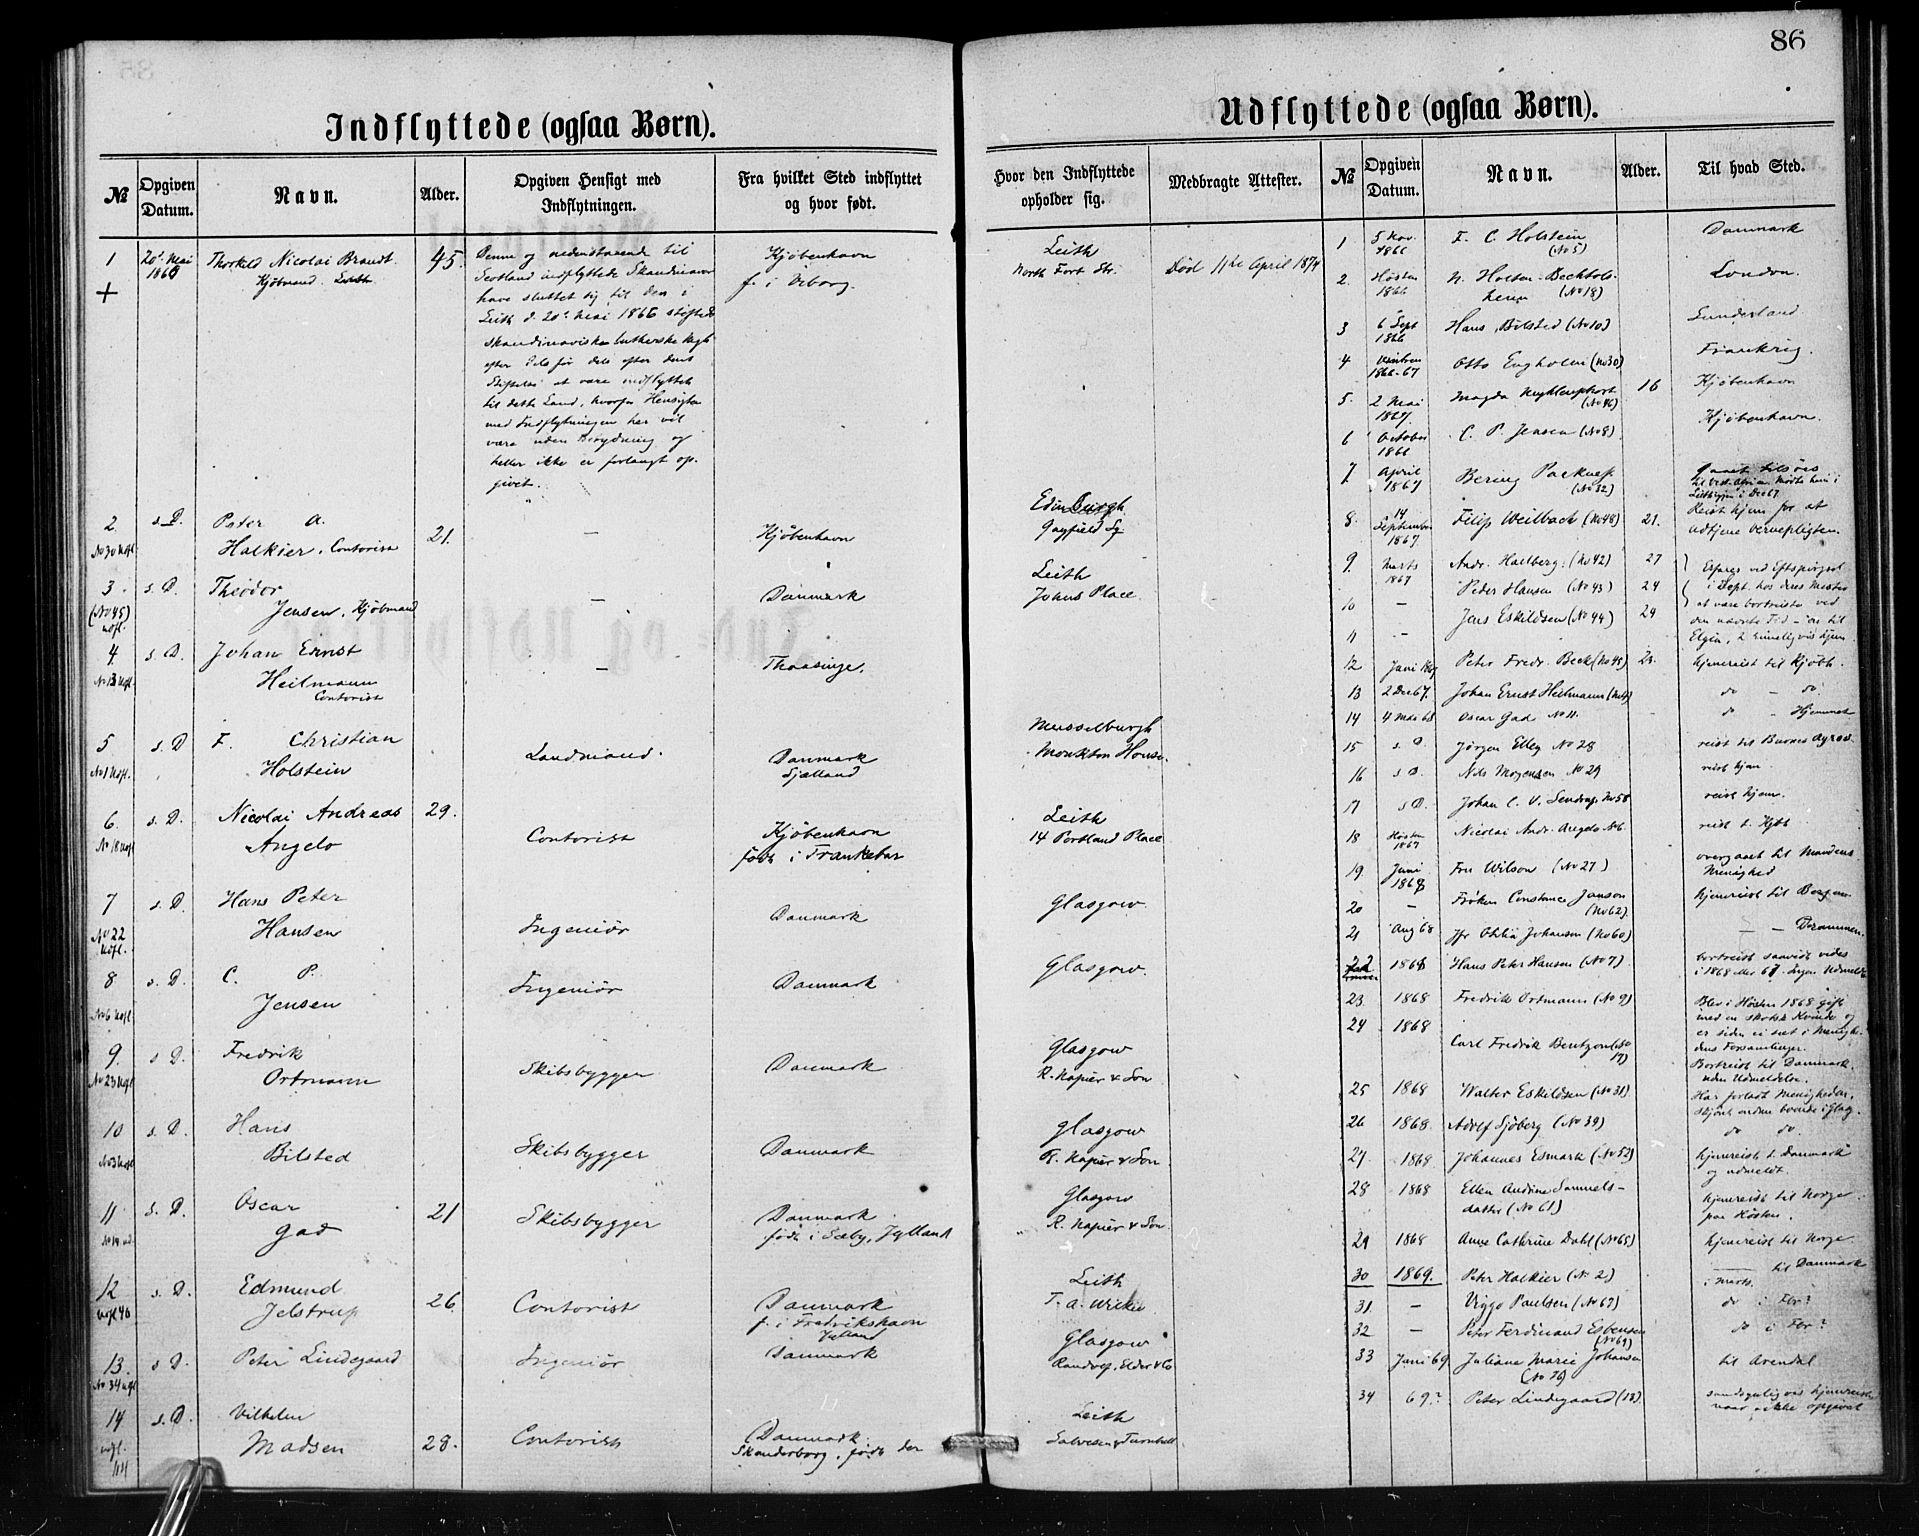 86
Indflyttede (ogsaa Børn).
№ Opgiven Datum. Navn. Alder. Opgiven Hensigt med Indflytningen. Fra hvilket Sted indflyttet og hvor født.
1 20de Mai 1866 Thorkild Nicolai Brandt. 45. Denne og nedenstaaende til Kjøbenhavn
+ Kjøbmand. Leith Scotland indflyttede Skandinaver f. i Viborg.
have sluttet sig til den i
Leith d. 20de Mai 1866 stiftede
skandinaviske lutherske Kgh
efter dels før dels efter dens
Stiftelse at være indflyttet
til dette Land, hvorfor Hensigten
med Indflytningen her vil
være uden Betydning og
heller ikke er forlangt op-
givet.
2 s. D. Peter A.
No 30 Udfl. Halkier, Contorist 21. — Kjøbenhavn
3 s. D. Theodor
(No 45) Udfl. Jensen, Kjøbmand — Danmark
4 s. D. Johan Ernst
No 13 Udfl. Heilmann — Thaasinge.
Contorist
5 s. D. F. Christian
No 1 Udfl. Holstein Landmand. Danmark
Sjælland
6. s. D. Nicolai Andreas 29.
No 18 Udfl. Angelo Contorist Kjøbenhavn
født i Frankebar
7 s. D. Hans Peter
No 22 Udfl. Hansen Ingeniør Danmark
8 s. D. C. P.
No 6 Udfl. Jensen Ingeniør Danmark
9. s. D. Fredrik
No 23 Udfl. Ortmann Skibsbygger Danmark
10 s. D. Hans
No 3 Udfl. Bilsted Skibsbygger Danmark
11 s. D. Oscar
No 14 ud. Gad 21 Skibsbygger Danmark
født i Sæby, Jylland
12 s. D. Edmund
Udfl 40 Jelstrup 26. Contorist Danmark
f. i Fredrikshavn
Jylland
13. s. D. Peter Lindegaard Ingeniør Danmark
No 34 Udfl
14 s. D. Vilhelm
udfl. Madsen 28. Contorist Danmark.
Skanderborg, født der
Udflyttede (ogsaa Børn).
Hvor den Indflyttede opholder sig. Medbragte Attester.
Leith
North Fort Str. Død 11te April 1874
Edinburgh
Gayfield Sq
Leith
Johns Place
Musselburgh
Monkton House.
Leith
14 Portland Place
Glasgow.
Glasgow.
Glasgow
R. Napier & Son
Glasgow
R. Napier & Son
Glasgow
R. Napier & Son
Leith
T. A. Wilkie
Glasgow
Randolf, Elder & Co
Leith
Salvesen & Turnbull
№ Opgiven Datum. Navn. Alder. Til hvad Sted.
1 5 Nov. 1866 F. C. Holstein (No 5) Danmark
2. Høsten 1866 N. Holten-Bechtols-
heim (No 18) London.
3 6 Sept 1866 Hans Bilsted (No 10) Sunderland
4 Vintren 1866-67 Otto Engholm (No 30) Frankrig.
5. 2 Mai 1867. Magda (No 46) 16 Kjøbenhavn
6 October 1866 C. P. Jensen (No 8) Kjøbenhavn.
7 April 1867 Bering (No 32) Gaaet tilsøes
til Vest-Afrika. Mødte ham i
Leith igjen i Dec 67
8. 14 September 1867 Filip Weilbach (No 48) 21. Reist hjem for at
udtjene Vernepligten.
9. Marts 1867 Andr. Hallberg. (No 42) 27 Erfares ved Eftspørgsel
10 — Peter Hansen (No 43) 24 i Sept. hos deres Mester
11 — Jens Eskildsen (No 44) 29 at være bortreiste ved
den nævnte Tid – en til
Elgin, 2 rimeligvis hjem.
12 Juni 1867 Peter Fredr. Beck hjemreist til Kjøbh.
13 2 Dec 67. Johan Ernst Heilmann (No 4) do — do.
14 4 Mai 68 Oscar Gad No 11. do — Hjemmet
15 s. D. Jørgen Elley No 28 reist til Buenos Ayres.
16 s. D. Nils Mogensen No 29 reist hjem.
17 s. D. Johan C. V. No 58 reist hjem.
18 Høsten 1867 Nicolai Andr. Angelo No 6. reist t. Kjbh
19. Juni 1868 Fru Wilson (No 27) overgaaet til Mandens
Menighed
20 — Frøken Constance Janson (No 62) hjemreist til Bergen
21 Aug 68 Jfr Othilia Johansen (No 60) — — Drammen.
22 1868 Hans Peter Hansen (No 7) bortreist saavidt vides
i 1868 eller 67. Ingen Udmeldelse
23 1868 Fredrik Ortmann (No 9) Blev i Høsten 1868 gift
med en skotsk Kvinde og
er siden ei set i Menighe-
dens Forsamlinger.
24 1868 Carl Fredrik Bentzon (No 17) Bortreist til Danmark
uden Udmeldelse.
25 1868 Walter Eskildsen (No 31) Har forladt Menigheden,
skjønt endnu boende i Glasg.
26 1868. Adolf Sjøberg (No 39) do do.
27 1868 Johannes Esmark (No 52) hjemreist t. Danmark
og udmeldt.
28 1868 Ellen Andine Samuels-
datter (No 61) hjemreist til Norge
paa Høsten.
29 1868 Anne Cathrine Dahl (No 65) hjemreist til Norge.
30 1869. Peter Halkier (No 2) — til Danmark
i Marts.
31. — Viggo Paulsen (No 67) do i For?
32 — Peter Ferdinand Esbensen (No 69) do i For?
33 Juni 69. Juliane Marie Johansen (No 76) til Arendal
34 69.? Peter Lindegaard (13) sandsynligvis hjemreist
naar ikke opgivet